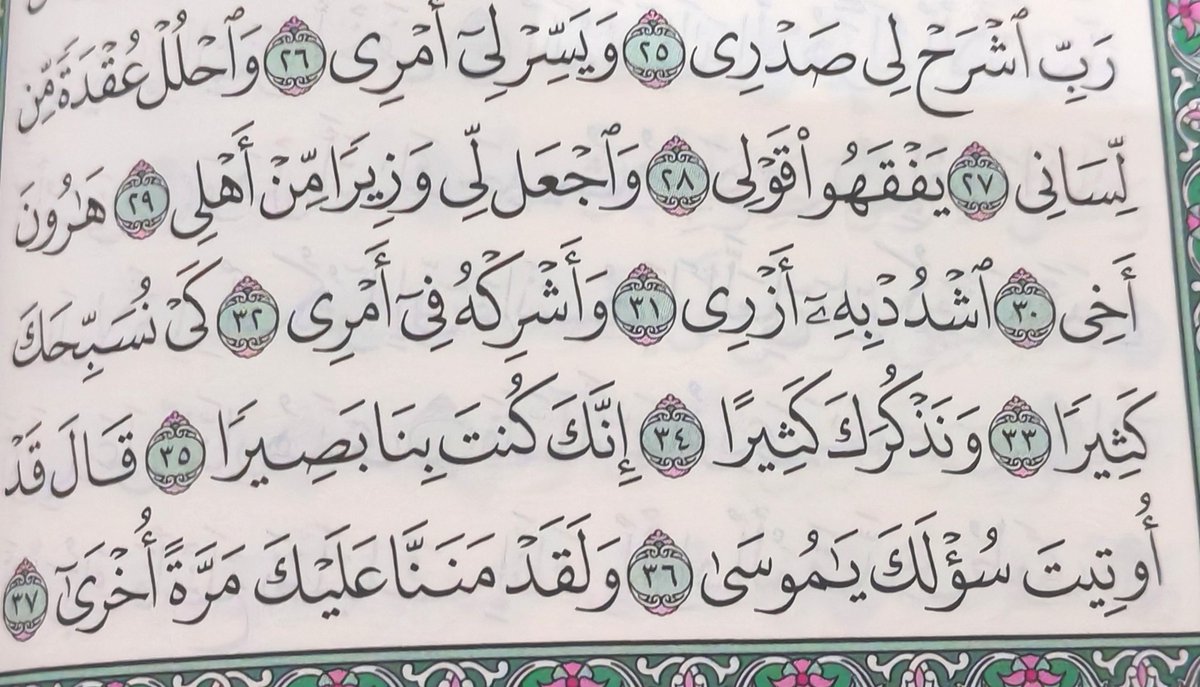 رَبِّ ٱشْرَحْ لِى صَدْرِى ٢٥ وَيَسِّرْ لِىٓ أَمْرِى ٢٦ وَٱحْلُلْ عُقْدَةً مِّن
لِّسَانِى ٢٧ يَفْقَهُوا۟ قَوْلِى ٢٨ وَٱجْعَل لِّى وَزِيرًا مِّنْ أَهْلِى ٢٩ هَٰرُونَ
أَخِى ٣٠ ٱشْدُدْ بِهِۦٓ أَزْرِى ٣١ وَأَشْرِكْهُ فِىٓ أَمْرِى ٣٢ كَىْ نُسَبِّحَكَ
كَثِيرًا ٣٣ وَنَذْكُرَكَ كَثِيرًا ٣٤ إِنَّكَ كُنتَ بِنَا بَصِيرًا ٣٥ قَالَ قَدْ
أُوتِيتَ سُؤْلَكَ يَٰمُوسَىٰ ٣٦ وَلَقَدْ مَنَنَّا عَلَيْكَ مَرَّةً أُخْرَىٰٓ ٣٧